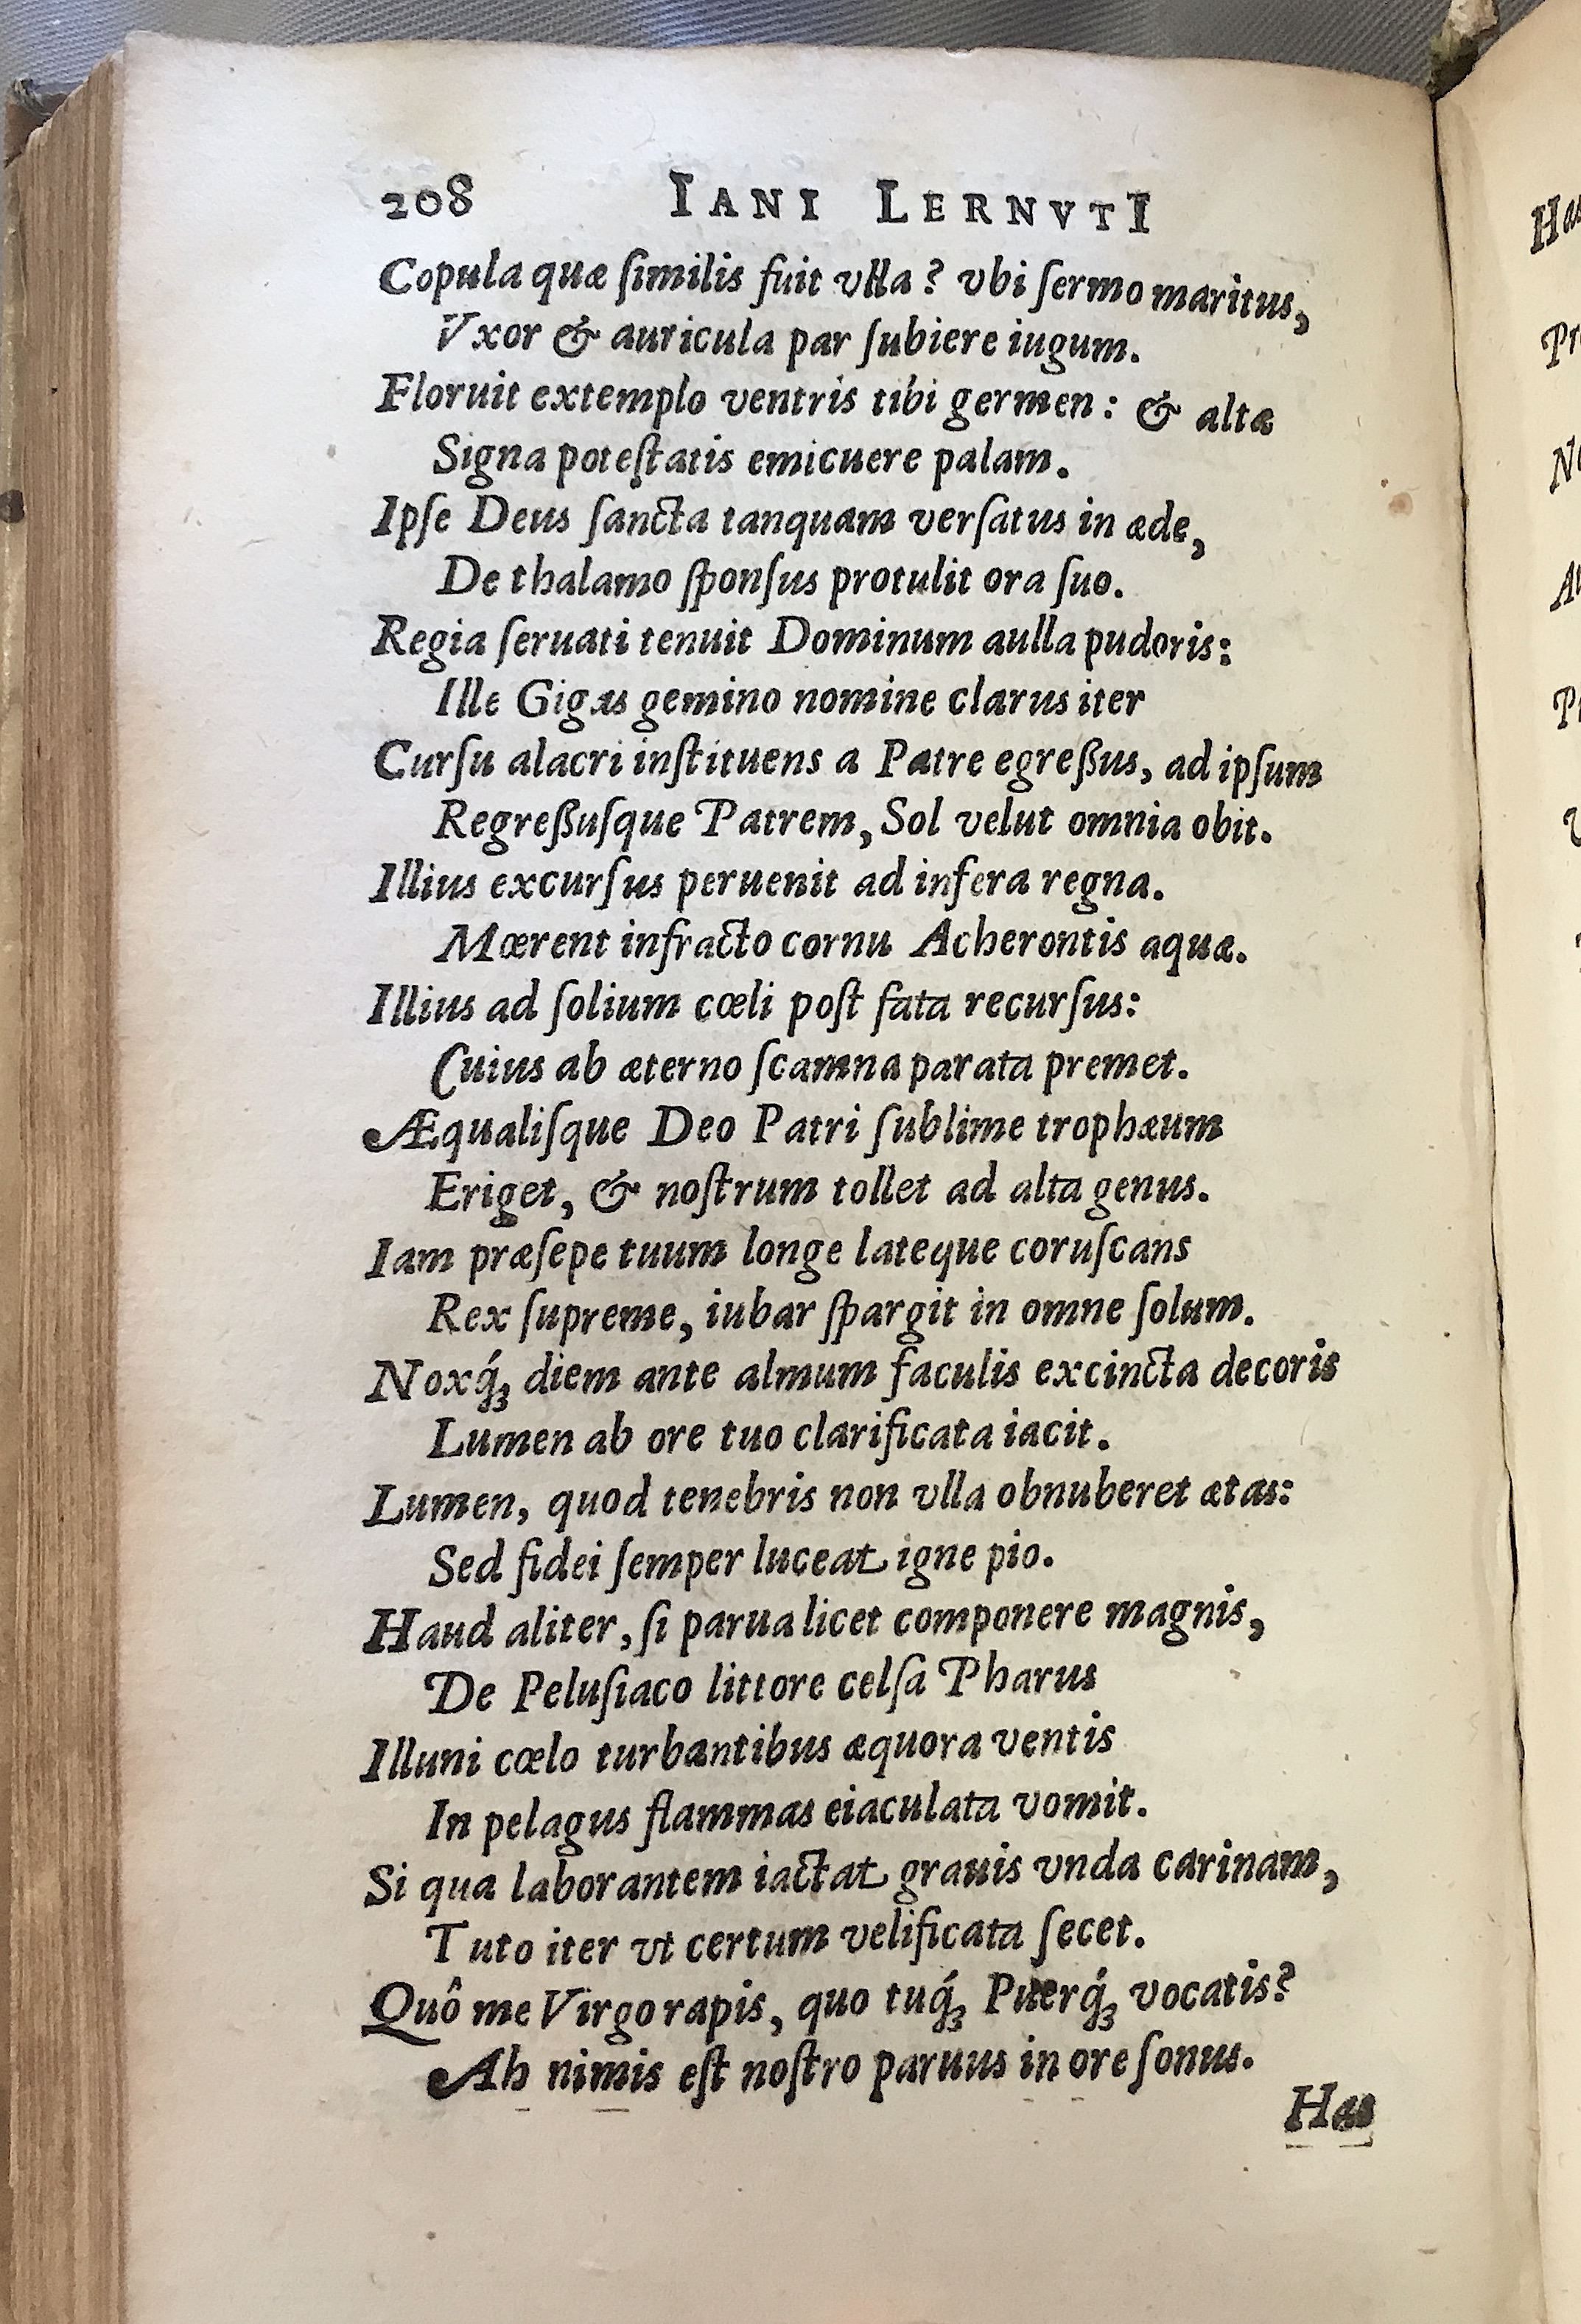 208 IANI LERNVTI
Copula quæ ſimilis fuit vlla? vbi ſermo maritus,
Vxor & auricula par ſubiere iugum.
Floruit extemplo ventris tibi germen: & altæ
Signa poteſtatis emicuere palam.
Ipſe Deus ſancta tanquam verſatus in æde,
De thalamo ſponſus protulit ora ſuo.
Regia ſeruati tenuit Dominum aulla pudoris:
Ille Gigas gemino nomine clarus iter
Curſu alacri inſtituens a Patre egreßus, ad ipſum
Regreßuſque Patrem, Sol velut omnia obit.
Illius excurſus peruenit ad infera regna.
Mœrent infracto cornu Acherontis aquæ.
Illius ad ſolium cœli poſt fata recurſus:
Cuius ab æterno ſcamna parata premet.
Æqualiſque Deo Patri ſublime trophæum
Eriget, & noſtrum tollet ad alta genus.
Iam præſepe tuum longe lateque coruſcans
Rex ſupreme, iubar ſpargit in omne ſolum.
Noxq́ꝫ diem ante almum faculis excincta decoris
Lumen ab ore tuo clarificata iacit.
Lumen, quod tenebris non vlla obnuberet ætas:
Sed fidei ſemper luceat igne pio.
Haud aliter, ſi parua licet componere magnis,
De Peluſiaco littore celſa Pharus
Illuni cœlo turbantibus æquora ventis
In pelagus flammas eiaculata vomit.
Si qua laborantem iactat grauis vnda carinam,
Tuto iter vt certum velificata ſecet.
Quô me Virgo rapis, quo tuq́ꝫ Puerq́ꝫ vocatis?
Ah nimis eſt noſtro paruus in ore ſonus.
Has